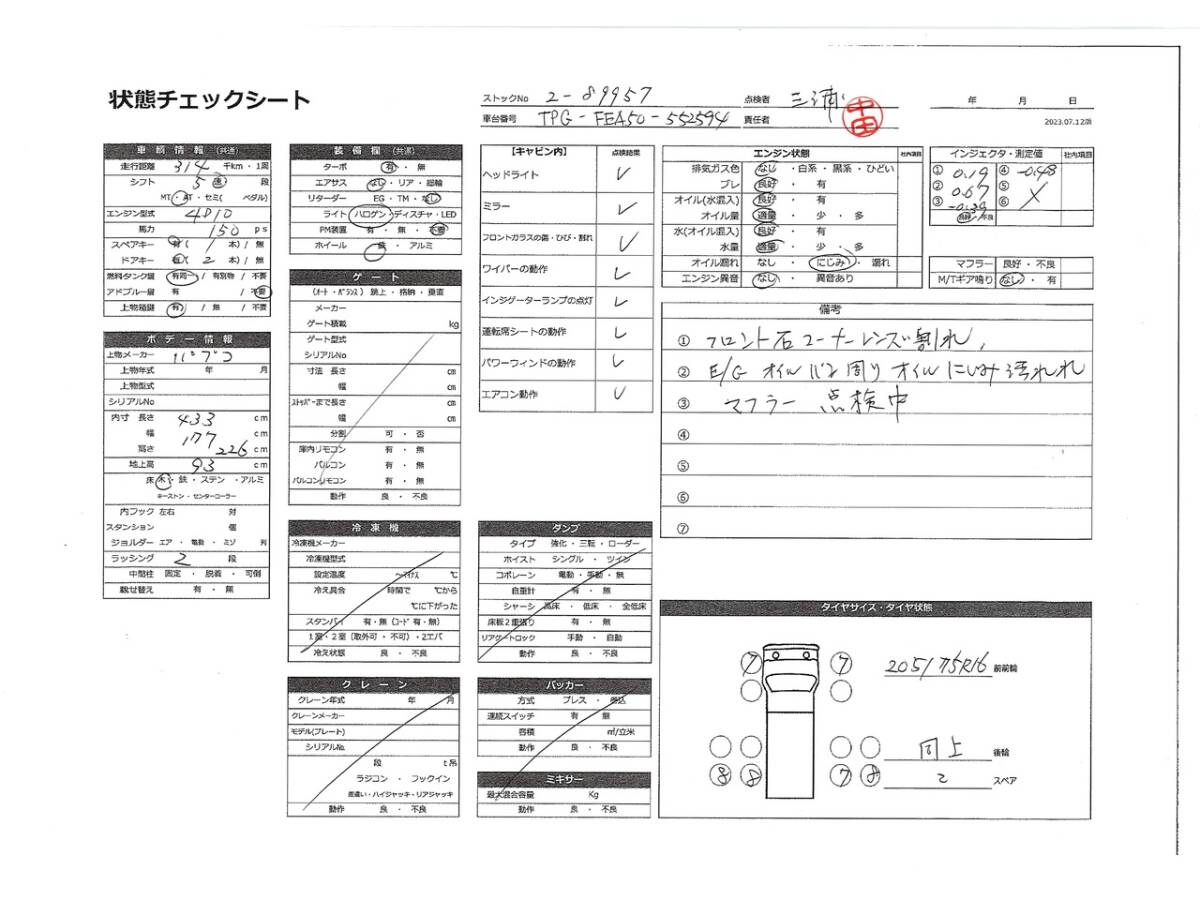 状態チェックシート
ストックNo 2-89957
点検者 三浦
中田
年 月 日
車台番号 TPG-FEA50-552594
責任者
2023.07.12版
車輌情報 (共通)
走行距離 314 千km・1周
シフト 5 速 段
MT・AT・セミ( ペダル)
エンジン型式 4P10
馬力 150 ps
スペアキー 有( 1 本) / 無
ドアキー 有( 2 本) / 無
燃料タンク鍵 有同一 / 有別物 / 不要
アドブルー鍵 有 / 不要
上物箱鍵 有 / 無 / 不要
ボデー情報
上物メーカー パブコ
上物年式 年 月
上物型式
シリアルNo
内寸 長さ 433 cm
幅 177 cm
高さ 226 cm
地上高 93 cm
床 木・鉄・ステン・アルミ
キーストン・センターコーラー
内フック 左右 対
スタンション 個
ジョルダー エア・電動・ミゾ 列
ラッシング 2 段
中間柱 固定・脱着・可倒
載せ替え 有・無
装備欄 (共通)
ターボ 有・無
エアサス なし・リア・総輪
リターダー EG・TM・なし
ライト ハロゲン・ディスチャ・LED
PM装置 有・無・不要
ホイール 鉄・アルミ
ゲート
(オート・バランス) 跳上・格納・垂直
メーカー
ゲート積載 kg
ゲート型式
シリアルNo
寸法 長さ cm
幅 cm
ストッパーまで長さ cm
幅 cm
分割 可・否
庫内リモコン 有・無
バルコン 有・無
バルコンリモコン 有・無
動作 良・不良
冷凍機
冷凍機メーカー
冷凍機型式
設定温度 ～マイナス ℃
冷え具合 時間で ℃から
℃に下がった
スタンバイ 有・無 (コード 有・無)
1室・2室 (取外可・不可)・2エバ
冷え状態 良・不良
クレーン
クレーン年式 年 月
クレーンメーカー
モデル(プレート)
シリアルNo.
段 t吊
ラジコン・フックイン
差違い・ハイジャッキ・リアジャッキ
動作 良・不良
【キャビン内】 点検結果
ヘッドライト ✓
ミラー ✓
フロントガラスの傷・ひび・割れ ✓
ワイパーの動作 ✓
インジゲーターランプの点灯 ✓
運転席シートの動作 ✓
パワーウィンドの動作 ✓
エアコン動作 ✓
ダンプ
タイプ 強化・三転・ローダー
ホイスト シングル・ツイン
コボレーン 電動・手動・無
自重計 有・無
シャーシ 高床・低床・全低床
床板2重張り 有・無
リアゲートロック 手動・自動
動作 良・不良
パッカー
方式 プレス・巻込
連続スイッチ 有・無
容積 ㎥/立米
動作 良・不良
ミキサー
最大混合容量 Kg
動作 良・不良
エンジン状態 社内項目
排気ガス色 なし・白系・黒系・ひどい
ブレ 良好・有
オイル(水混入) 良好・有
オイル量 適量・少・多
水(オイル混入) 良好・有
水量 適量・少・多
オイル漏れ なし・にじみ・漏れ
エンジン異音 なし・異音あり
インジェクタ・測定値 社内項目
① 0.19 ④ -0.48
② 0.67 ⑤
③ -0.39 ⑥
良好・不良
マフラー 良好・不良
M/Tギア鳴り なし・有
備考
① フロント右コーナーレンズ割れ,
② E/G オイルパン周り オイルにじみ汚れ
③ マフラー 点検中
④
⑤
⑥
⑦
タイヤサイズ・タイヤ状態
7 7 205/75R16 前前輪
同上 後輪
8 8 7 8 2 スペア